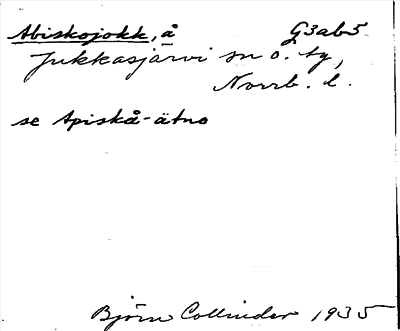 Abiskojokk, å G3ab5
Jukkasjärvi sn o. tg,
Norrb. l.
se Apiskå-ätno
Björn Collinder 1935